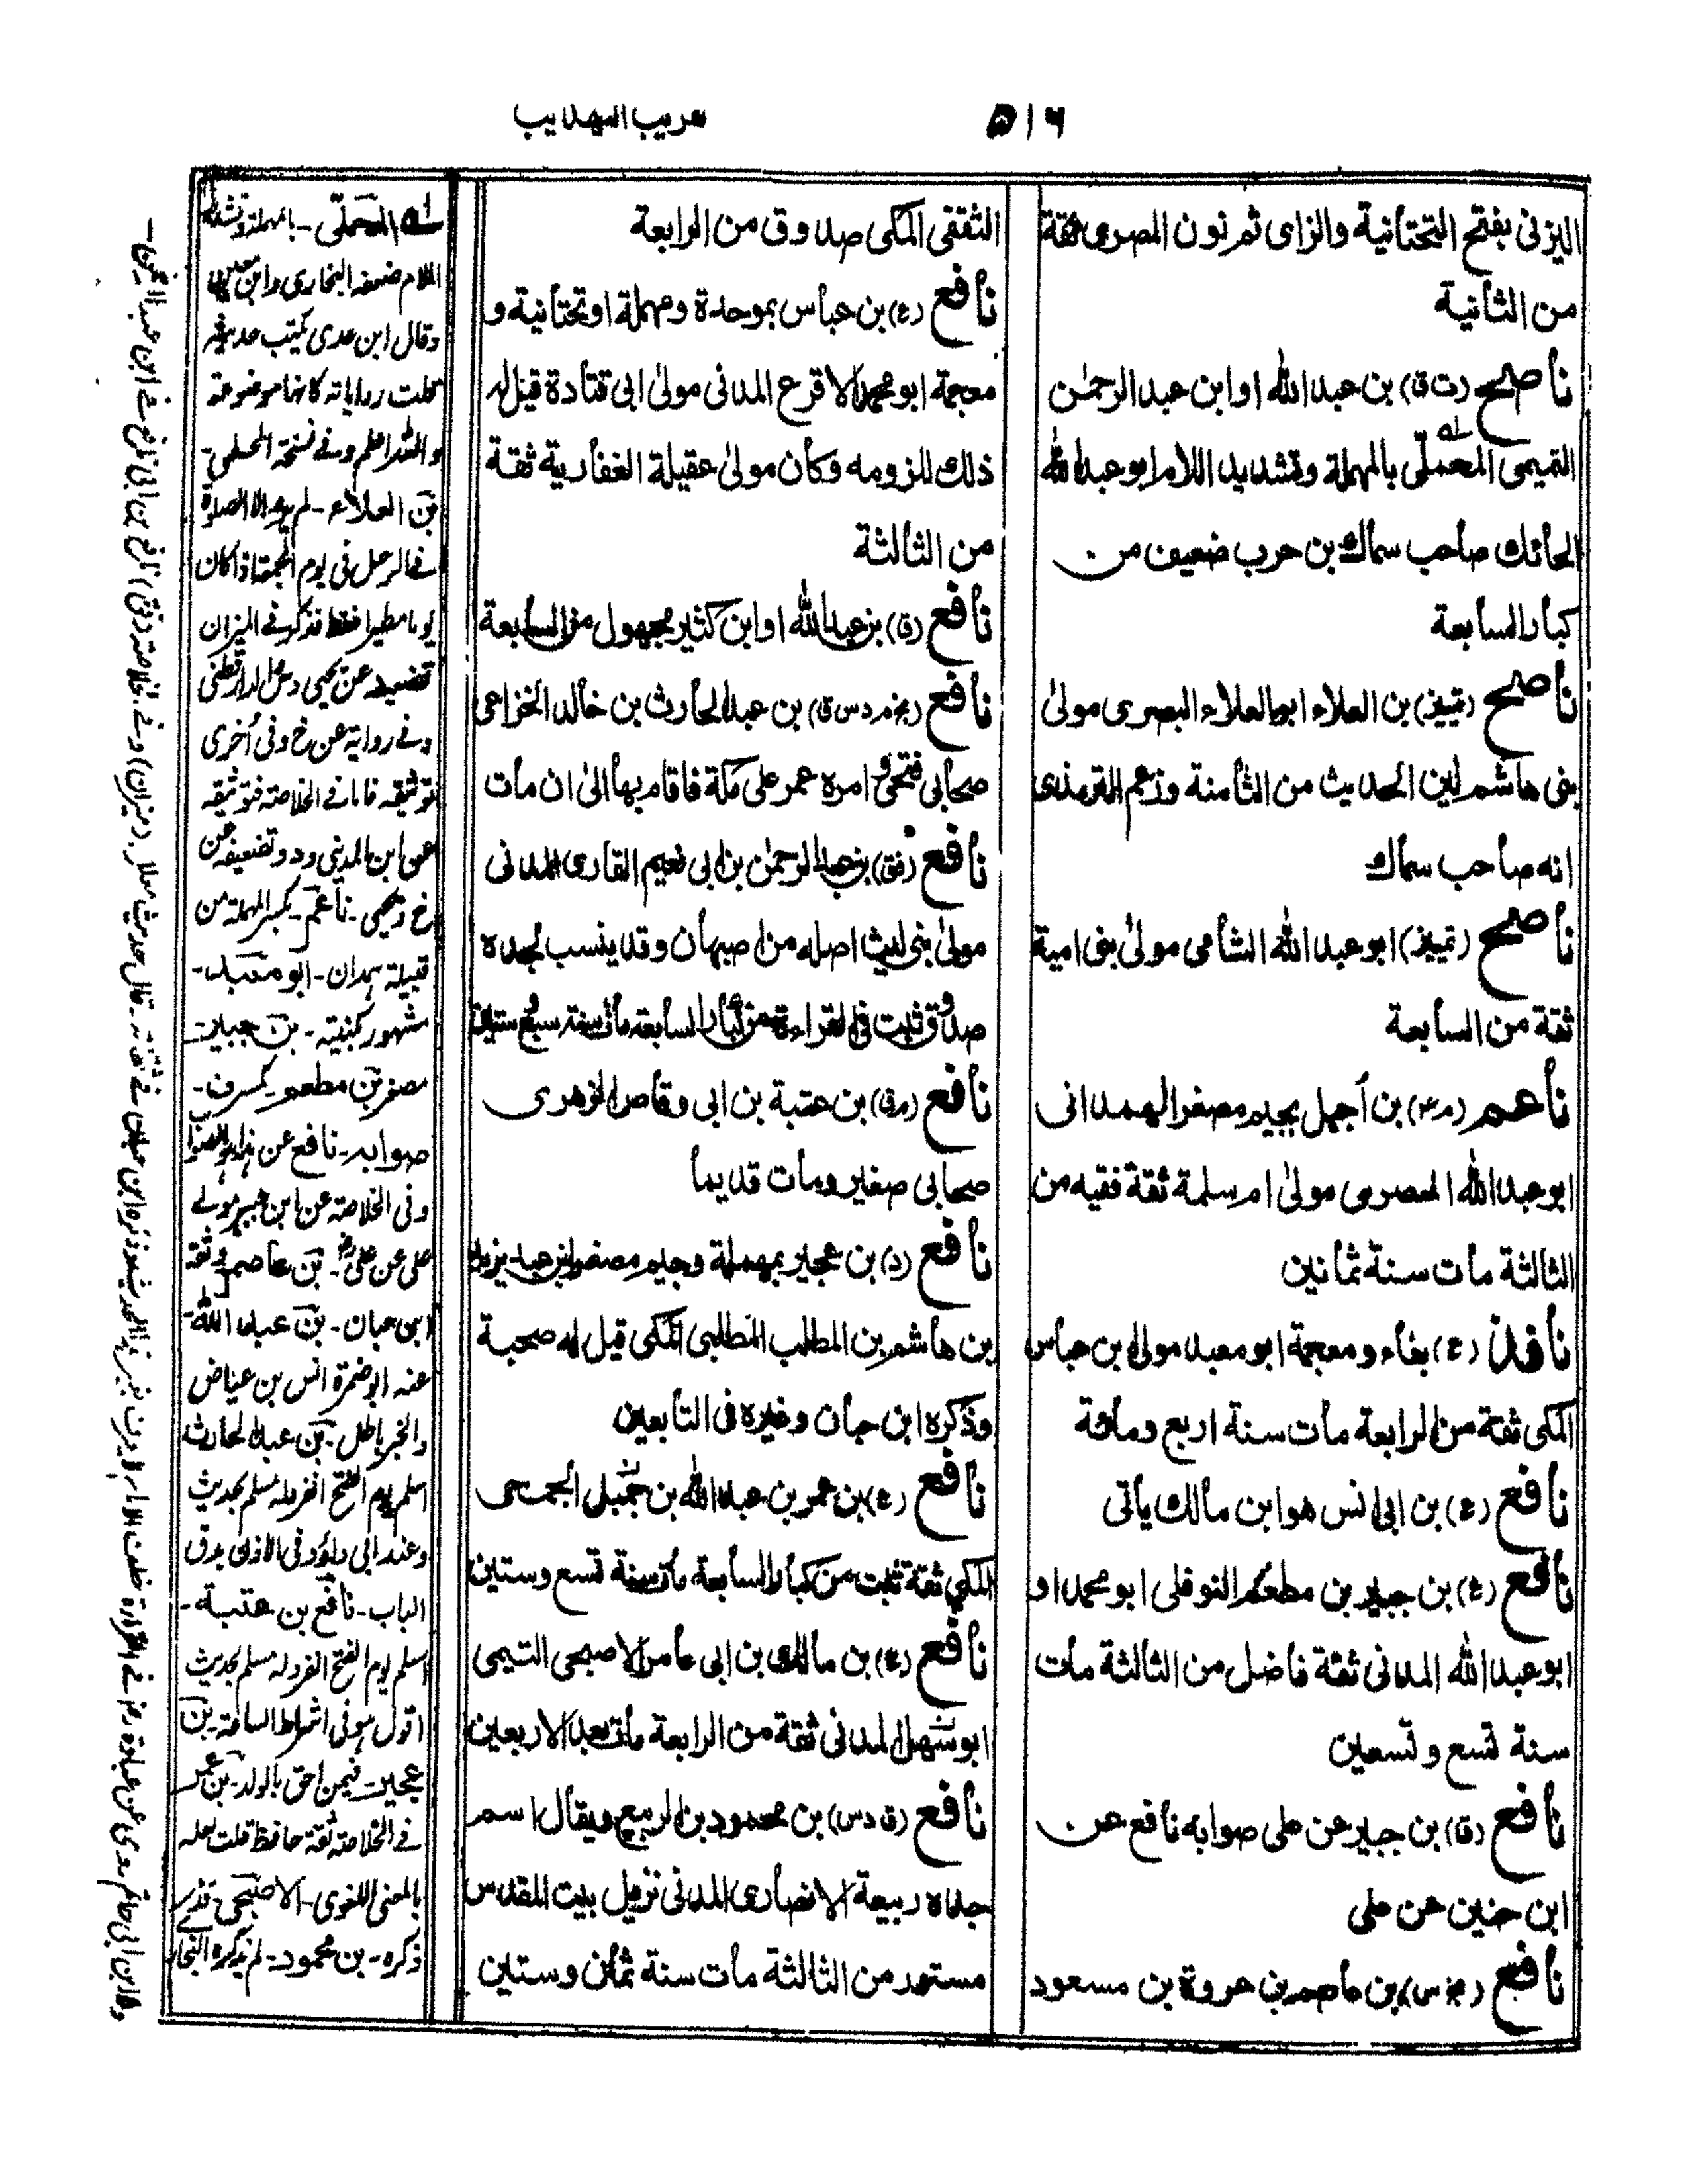 ٥١٦
تقريب التهذيب
اليزنى بفتح التحتانية والزاى ثم نون المصرى ثقة
من الثانية
ناصح (ت ق) بن عبد الله او ابن عبد الرحمٰن
التميمى المحلّمى بالمهملة وتشديد اللام ابو عبد الله
الحائك صاحب سماك بن حرب ضعيف من
كبار السابعة
ناصح (تمييز) بن العلاء ابو العلاء البصرى مولىٰ
بنى هاشم لين الحديث من الثامنة وزعم الترمذى
انه صاحب سماك
ناصح (تمييز) ابو عبد الله الشامى مولىٰ بنى امية
ثقة من السابعة
ناعم (م س) بن أجيل بجيم مصغر الهمدانى
ابو عبد الله المصرى مولىٰ ام سلمة ثقة فقيه من
الثالثة مات سنة ثمانين
نافذ (ع) بفاء ومعجمة ابو معبد مولى ابن عباس
المكى ثقة من الرابعة مات سنة اربع ومائة
نافع (ع) بن ابى انس هو ابن مالك ياتى
نافع (ع) بن جبير بن مطعم النوفلى ابو محمد او
ابو عبد الله المدنى ثقة فاضل من الثالثة مات
سنة تسع وتسعين
نافع (ق) بن جبير عن على صوابه نافع عن
ابن حنين عن على
نافع (بخ س) بن عاصم بن عروة بن مسعود
الثقفى المكى صدوق من الرابعة
نافع (ع) بن عباس بموحدة ومهملة او تحتانية و
معجمة ابو محمد الاقرع المدنى مولىٰ ابى قتادة قيل له
ذلك للزومه وكان مولىٰ عقيلة الغفارية ثقة
من الثالثة
نافع (ق) بن عبد الله او ابن كثير مجهول من السابعة
نافع (بخ م د س ق) بن عبد الحارث بن خالد الخزاعى
صحابى فتحى وامره عمر على مكة فاقام بها الىٰ ان مات
نافع (فق) بن عبد الرحمٰن بن ابى نعيم القارى المدنى
مولىٰ بنى ليث اصله من اصبهان وقد ينسب لجده
صدوق ثبت فى القراءة من كبار السابعة مات سنة سبع وستين
نافع (م ق) بن عتبة بن ابى وقاص الزهرى
صحابى صغير ومات قديما
نافع (د) بن عجير بمهملة وجيم مصغر ابن عبد يزيد
بن هاشم بن المطلب المطلبى المكى قيل له صحبة
وذكره ابن حبان وغيره فى التابعين
نافع (ع) بن عمر بن عبد الله بن جميل الجمحى
المكى ثقة ثبت من كبار السابعة مات سنة تسع وستين
نافع (ع) بن مالك بن ابى عامر الاصبحى التيمى
ابو سهيل المدنى ثقة من الرابعة مات بعد الاربعين
نافع (ق د س) بن محمود بن الربيع ويقال اسم
جده ربيعة الانصارى المدنى نزيل بيت المقدس
مستور من الثالثة مات سنة ثمان وستين
له المحملى - بالمهملة وتشديد
اللام ضعفه البخارى وابن معين
وقال ابن عدى يكتب حديثه
قلت رواياته كانها موضوعة
والله اعلم وفى نسخة المحلمى
بن العلاء - لم يرو الا الصلوة
فى الرحل فى يوم الجمعة اذا كان
يوما مطيرا فقط فذكر فى الميزان
تضعيفه عن يحيى وعن الدارقطنى
وفى رواية عن خ وفى أخرى
توثيقه فاما فى الخلاصة فتوثيقه
عن ابن المدينى ود وتضعيفه عن
خ ويحيى - ناعم - بكسر المهملة من
قبيلة همدان - ابو معبد -
مشهور بكنيته - بن جبير -
مصغر بن مطعم -
صوابه - نافع عن
وفى الخلاصة عن ابن جبير مولى
على عن على - بن عاصم وثقه
ابن حبان - بن عبد الله -
عنه ابو ضمرة انس بن عياض
والخبر باطل - بن عبد الحارث
اسلم يوم الفتح انفرد له مسلم بحديث
وعند ابى داؤد فى الاذان بدق
الباب - نافع بن عتبة -
اسلم يوم الفتح انفرد له مسلم بحديث
اقول هو فى اشراط الساعة - بن
عجير - فيمن احق بالولد - بن عمر
فى الخلاصة ثقة حافظ قلت لعله
بالمعنى اللغوى - الاصبحى -
ذكره - بن محمود - لم يذكره البخارى